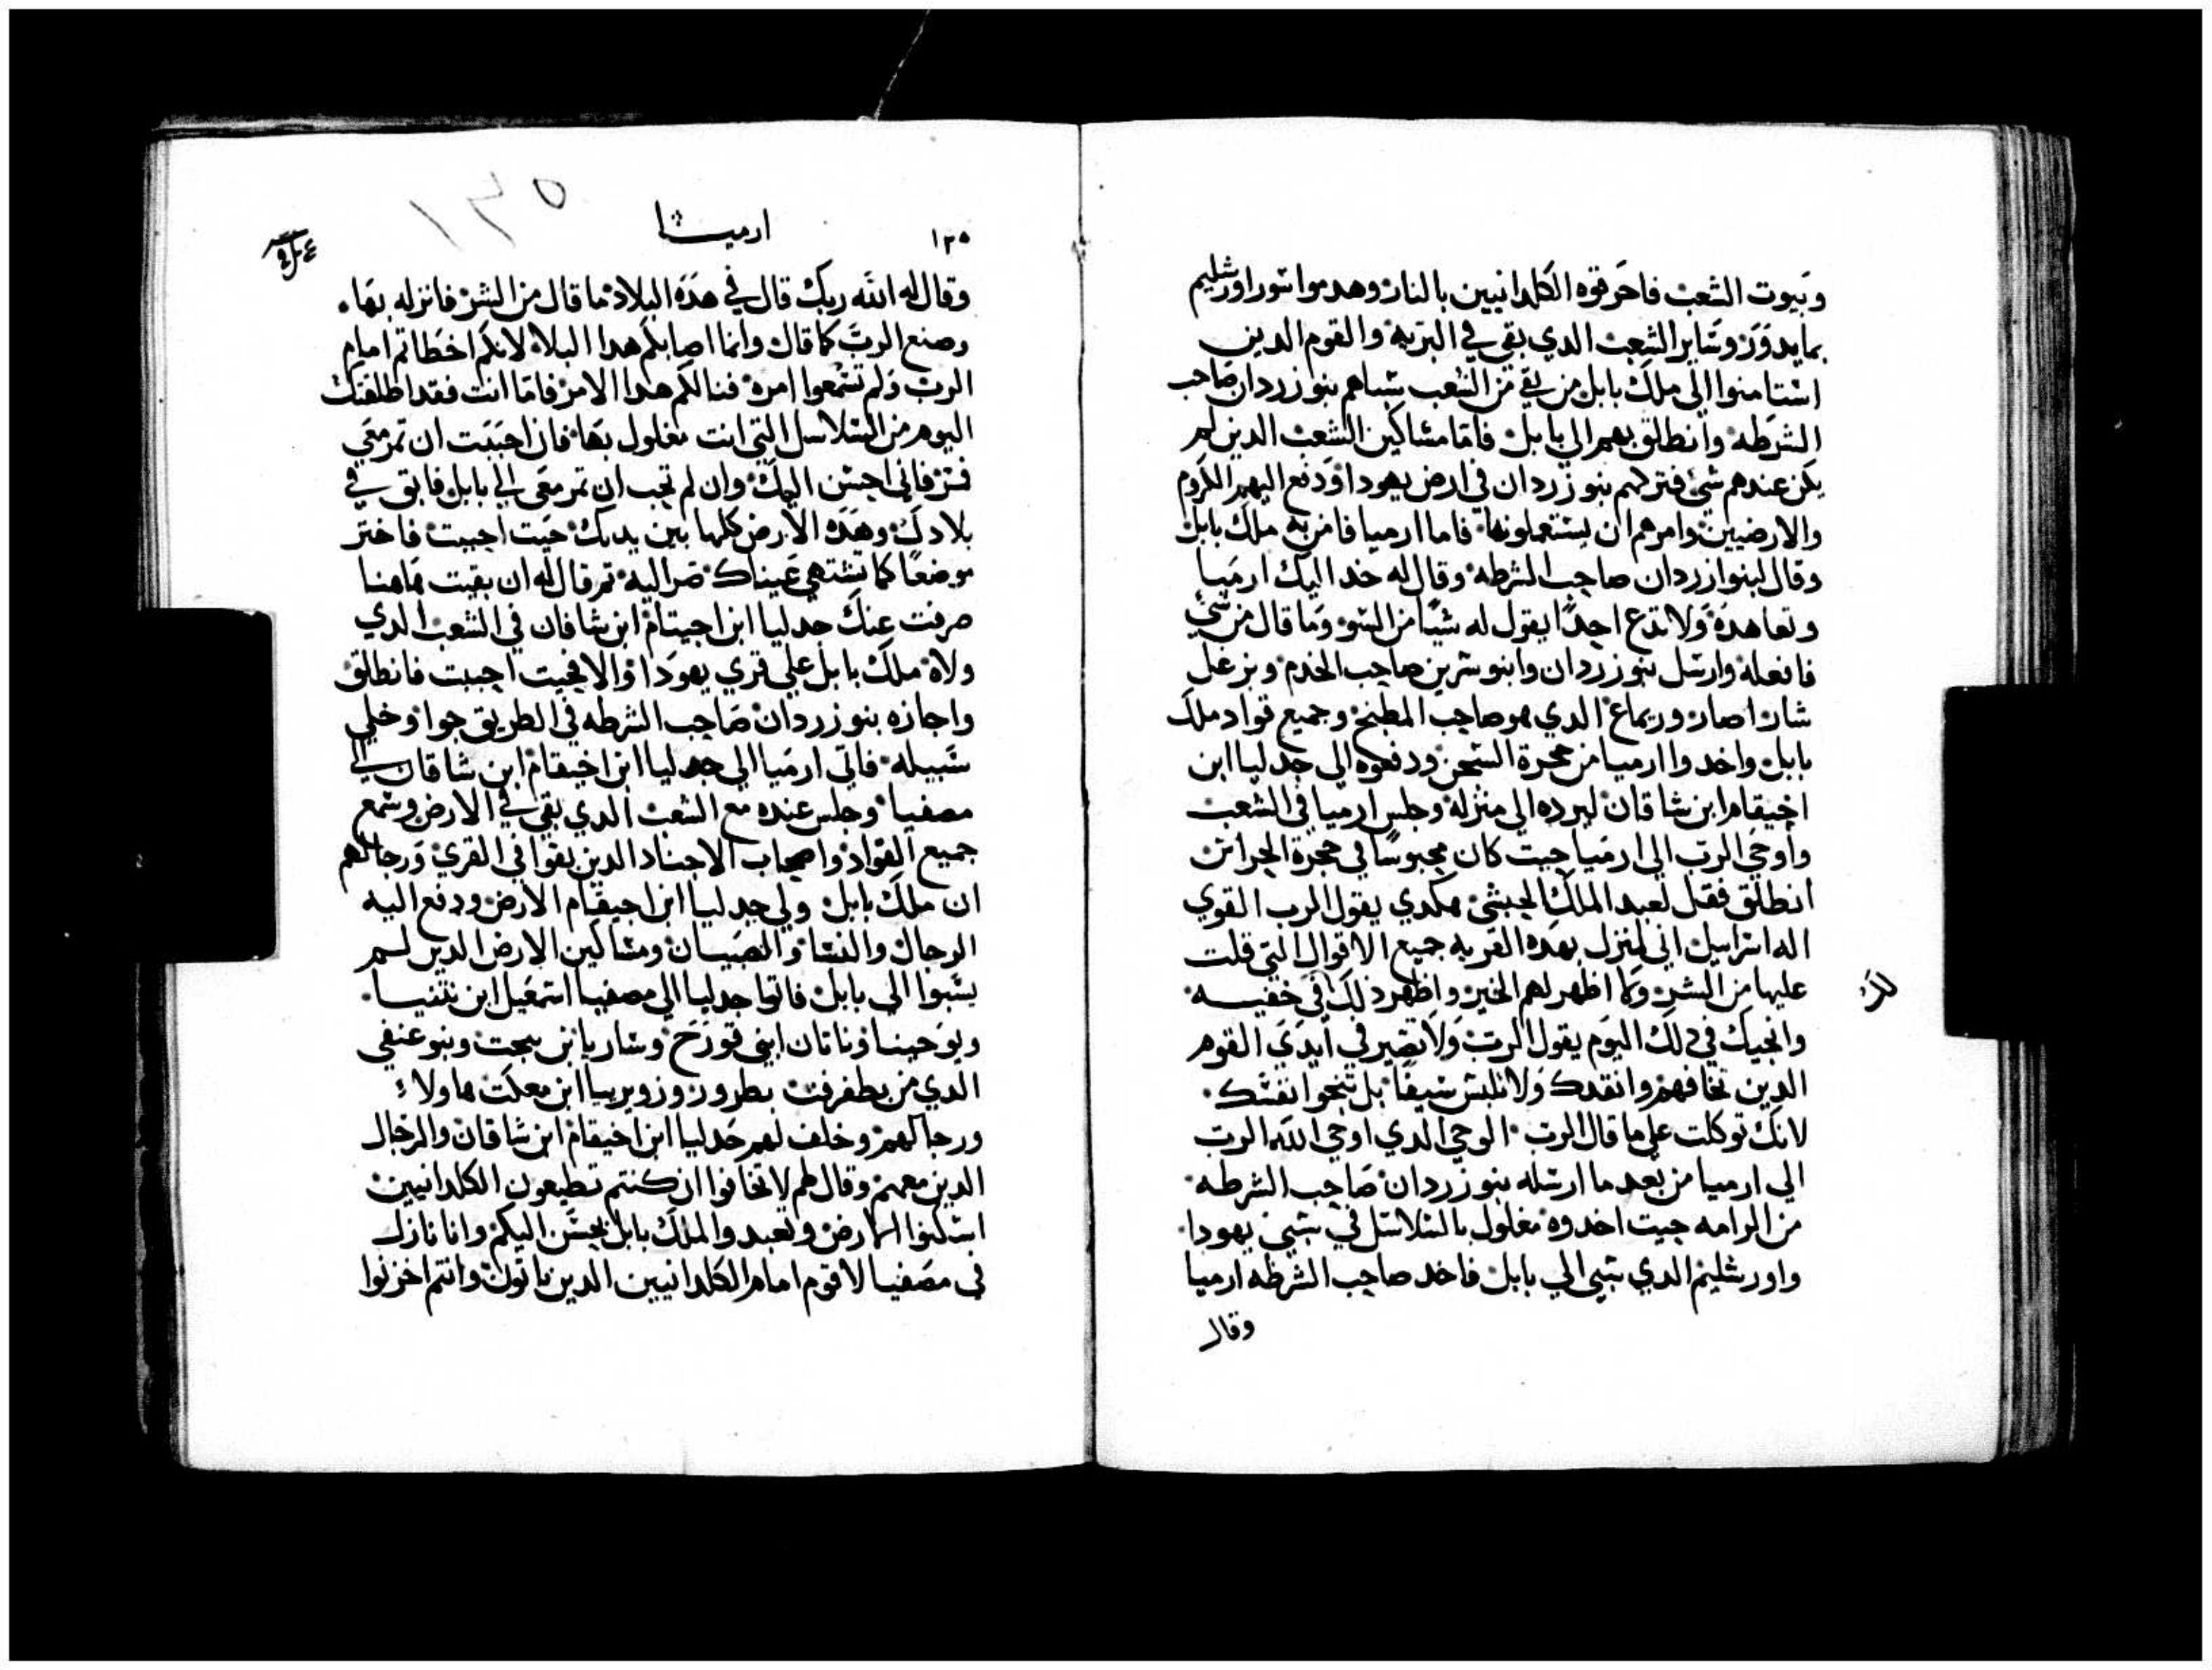 وبيوت الشعب فاحرقوه الكلدانيين بالنار وهدموا سور اورشليم
بما يدور وساير الشعب الدي بقي في البريه والقوم الدين
استامنوا الى ملك بابل من بقي من الشعب سباهم بنوزردان صاحب
الشرطه وانطلق بهم الى بابل فاما مساكين الشعب الدين لم
يكن عندهم شئ فتركهم بنوزردان في ارض يهودا ودفع اليهم الكروم
والارضيين وامرهم ان يستعملونها فاما ارميا فامر به ملك بابل
وقال لبنوازردان صاحب الشرطه وقال له خد اليك ارميا
وتعاهده ولا تدع احدًا يقول له شيًا من السو وما قال من شئ
فافعله وارسل بنوزردان وابنوشرين صاحب الخدم وبزعل
شار اصار وريماع الدي هو صاحب المطبخ وجميع قواد ملك
بابل واخدوا ارميا من حجرة السجن ودفعوه الى جدليا ابن
اخيقام ابن شاقان ليرده الى منزله وجلس ارميا في الشعب
واوحى الرب الى ارميا حيت كان محبوسًا في حجرة الحراس
انطلق فقل لعبد الملك الحبشي هكدي يقول الرب القوي
اله اسراييل اني لمنزل بهده القريه جميع الاقوال التي قلت
عليها من الشر وكما اظهر لهم الخير واظهر دلك في خفيه
وانجيك في دلك اليوم يقول الرب ولا تصير في ايدي القوم
الدين تخافهم وانقدك ولا تلبس سيفًا بل تنجوا نفسك
لانك توكلت على ما قال الرب الوحي الدي اوحى الله الرب
الى ارميا من بعد ما ارسله بنوزردان صاحب الشرطه
من الرامه حيت اخدوه مغلول بالسلاسل في سبي يهودا
واورشليم الدي سبي الى بابل فاخد صاحب الشرطه ارميا
وقال
١٣٥
ارميا
١٢٥
وقال له الله ربك قال في هده البلاد ما قال من الشر فانزله بها
وصنع الرب كما قال وانما اصابكم هدا البلاء لانكم اخطاتم امام
الرب ولم تسمعوا امره فنالكم هدا الامر فاما انت فقد اطلقتك
اليوم من السلاسل التي انت مغلول بها فان احببت ان تمر معي
فمر فاني احسن اليك وان لم تحب ان تمر معي الى بابل فابق في
بلادك وهده الارض كلها بين يديك حيت احببت فاختر
موضعًا كما تشتهي عيناك صر اليه تم قال له ان بقيت هاهنا
صرفت عنك جدليا ابن اخيقام ابن شاقان في الشعب الدي
ولاه ملك بابل على قري يهودا والا فحيت احببت فانطلق
واجازه بنوزردان صاحب الشرطه في الطريق جوا وخلي
سبيله فاتى ارميا الى جدليا ابن اخيقام ابن شاقان الى
مصفيا وجلس عنده مع الشعب الدي بقي في الارض وسمع
جميع القواد واصحاب الاجناد الدين بقوا في القري ورجالهم
ان ملك بابل ولي جدليا ابن اخيقام الارض ودفع اليه
الرجال والنسا والصبيان ومساكين الارض الدين لم
يسبوا الى بابل فاتوا جدليا الى مصفيا اسمعيل ابن نتنيا
ويوحينا وناتان ابني قورح وساريا ابن وبنو عنفي
الدي من بطفرفت بطرور وزويربيا ابن معكت هاولاء
ورجالهم وخلف لهم جدليا ابن اخيقام ابن شاقان والرجال
الدين معهم وقال لهم لا تخافوا ان كنتم تطيعون الكلدانيين
اسكنوا الارض وتعبدوا الملك بابل يحسن اليكم وانا نازل
في مصفيا لاقوم امام الكلدانيين الدين ياتون وانتم اخزنوا